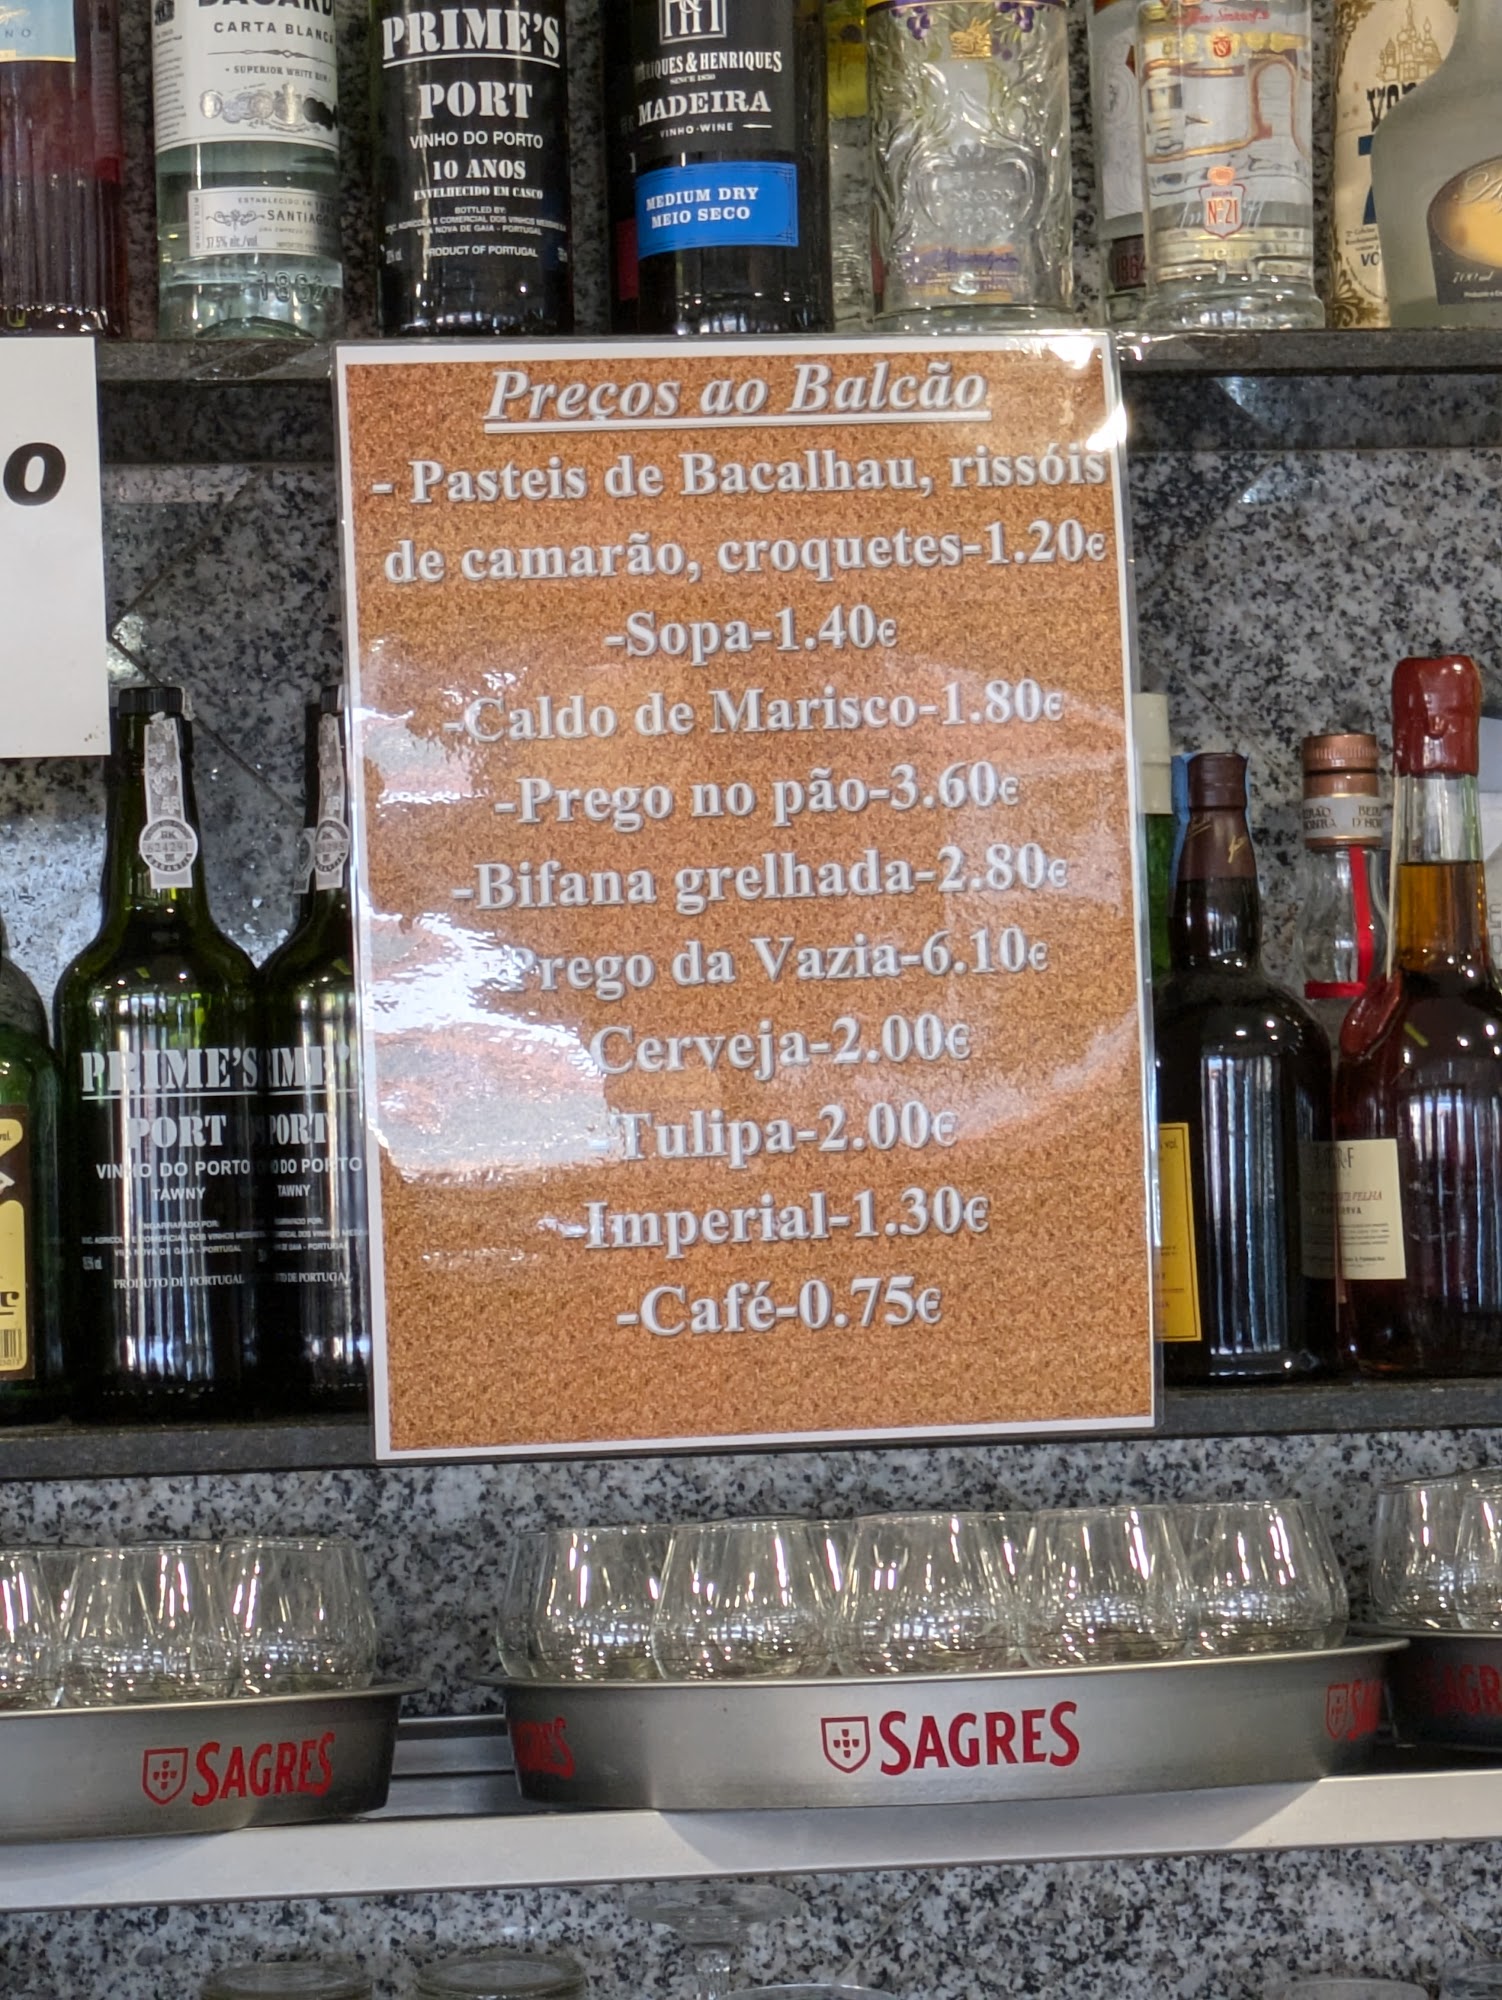 CARTA BLANCA
SUPERIOR WHITE RUM
SANTIAGO
37.5% alc./vol.
PRIME'S
PORT
VINHO DO PORTO
10 ANOS
ENVELHECIDO EM CASCO
BOTTLED BY:
VILA NOVA DE GAIA - PORTUGAL
PRODUCT OF PORTUGAL
RIQUES & HENRIQUES
SINCE 1850
MADEIRA
VINHO-WINE
MEDIUM DRY
MEIO SECO
Nº21
700 ml
o
Preços ao Balcão
- Pasteis de Bacalhau, rissóis
de camarão, croquetes-1.20€
-Sopa-1.40€
-Caldo de Marisco-1.80€
-Prego no pão-3.60€
-Bifana grelhada-2.80€
Prego da Vazia-6.10€
Cerveja-2.00€
-Tulipa-2.00€
-Imperial-1.30€
-Café-0.75€
PRIME'S
PORT
VINHO DO PORTO
TAWNY
ENGARRAFADO POR:
VILA NOVA DE GAIA - PORTUGAL
PRODUTO DE PORTUGAL
PORT
TAWNY
SAGRES
SAGRES
SAGRES